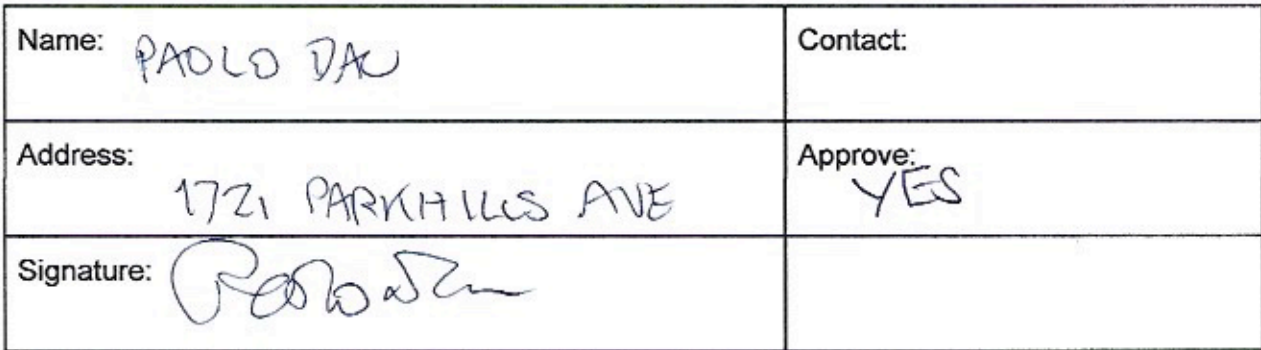 Name: PAOLO DAU
Contact:
Address: 1721 PARKHILLS AVE
Approve: YES
Signature: Paolo Dau